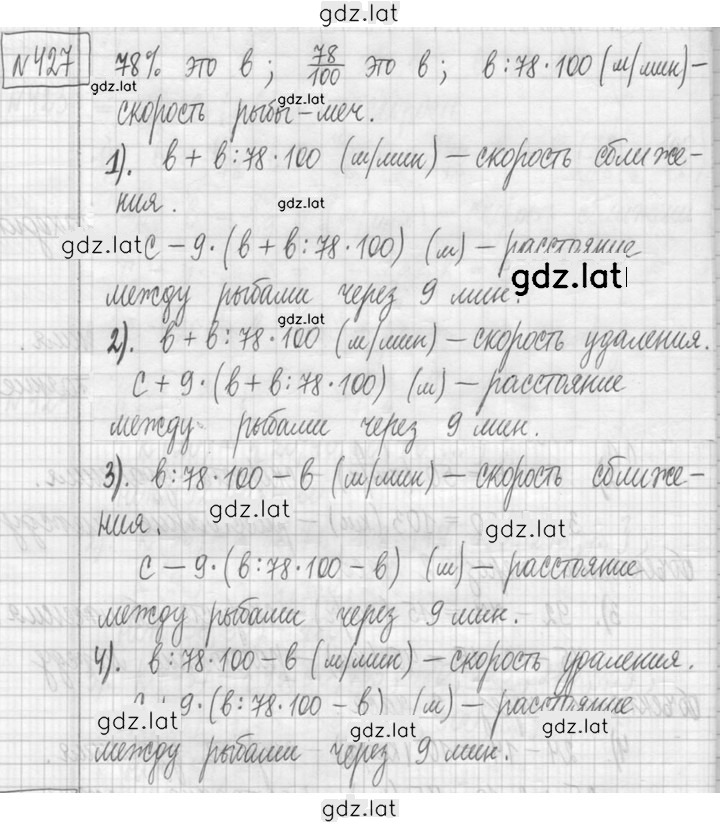 gdz.lat
№427 78% это в; 78/100 это в; в:78·100 (м/мин)–
gdz.lat gdz.lat
скорость рыбы-меч.
1). в + в:78·100 (м/мин) – скорость сближе-
ния. gdz.lat
gdz.lat с – 9·(в + в:78·100) (м) – расстояние
gdz.lat
между рыбами через 9 мин.
gdz.lat
2). в + в:78·100 (м/мин) – скорость удаления.
с + 9·(в + в:78·100) (м) – расстояние
между рыбами через 9 мин.
3). в:78·100 – в (м/мин) – скорость сближе-
gdz.lat gdz.lat
ния.
с – 9·(в:78·100 – в) (м) – расстояние
между рыбами через 9 мин.
4). в:78·100 – в (м/мин) – скорость удаления.
9·(в:78·100 – в) (м) – расстояние
gdz.lat gdz.lat gdz.lat
между рыбами через 9 мин.
gdz.lat